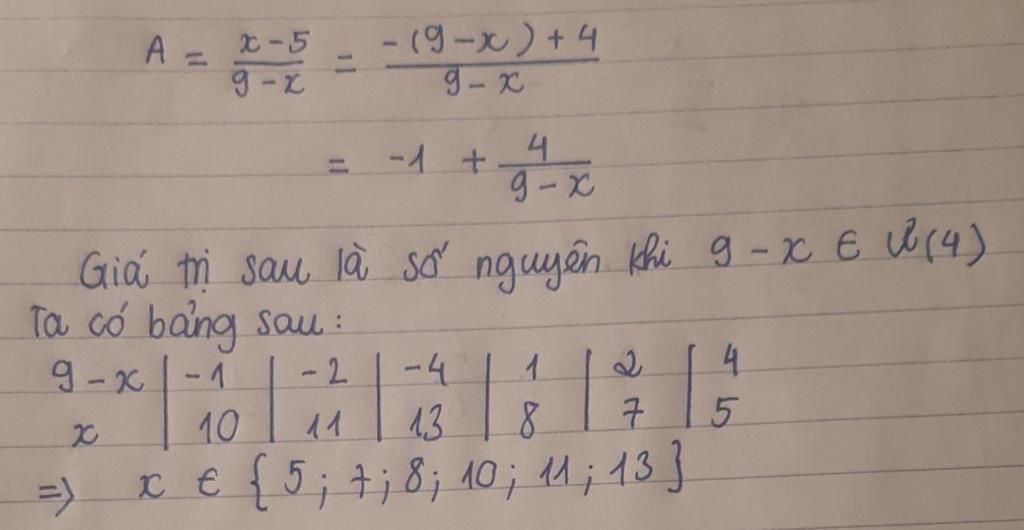 A = \frac{x-5}{9-x} = \frac{-(9-x)+4}{9-x}
= -1 + \frac{4}{9-x}
Giá trị sau là số nguyên khi 9-x ∈ Ư(4)
Ta có bảng sau:
9-x | -1 | -2 | -4 | 1 | 2 | 4
x | 10 | 11 | 13 | 8 | 7 | 5
=> x ∈ {5; 7; 8; 10; 11; 13}